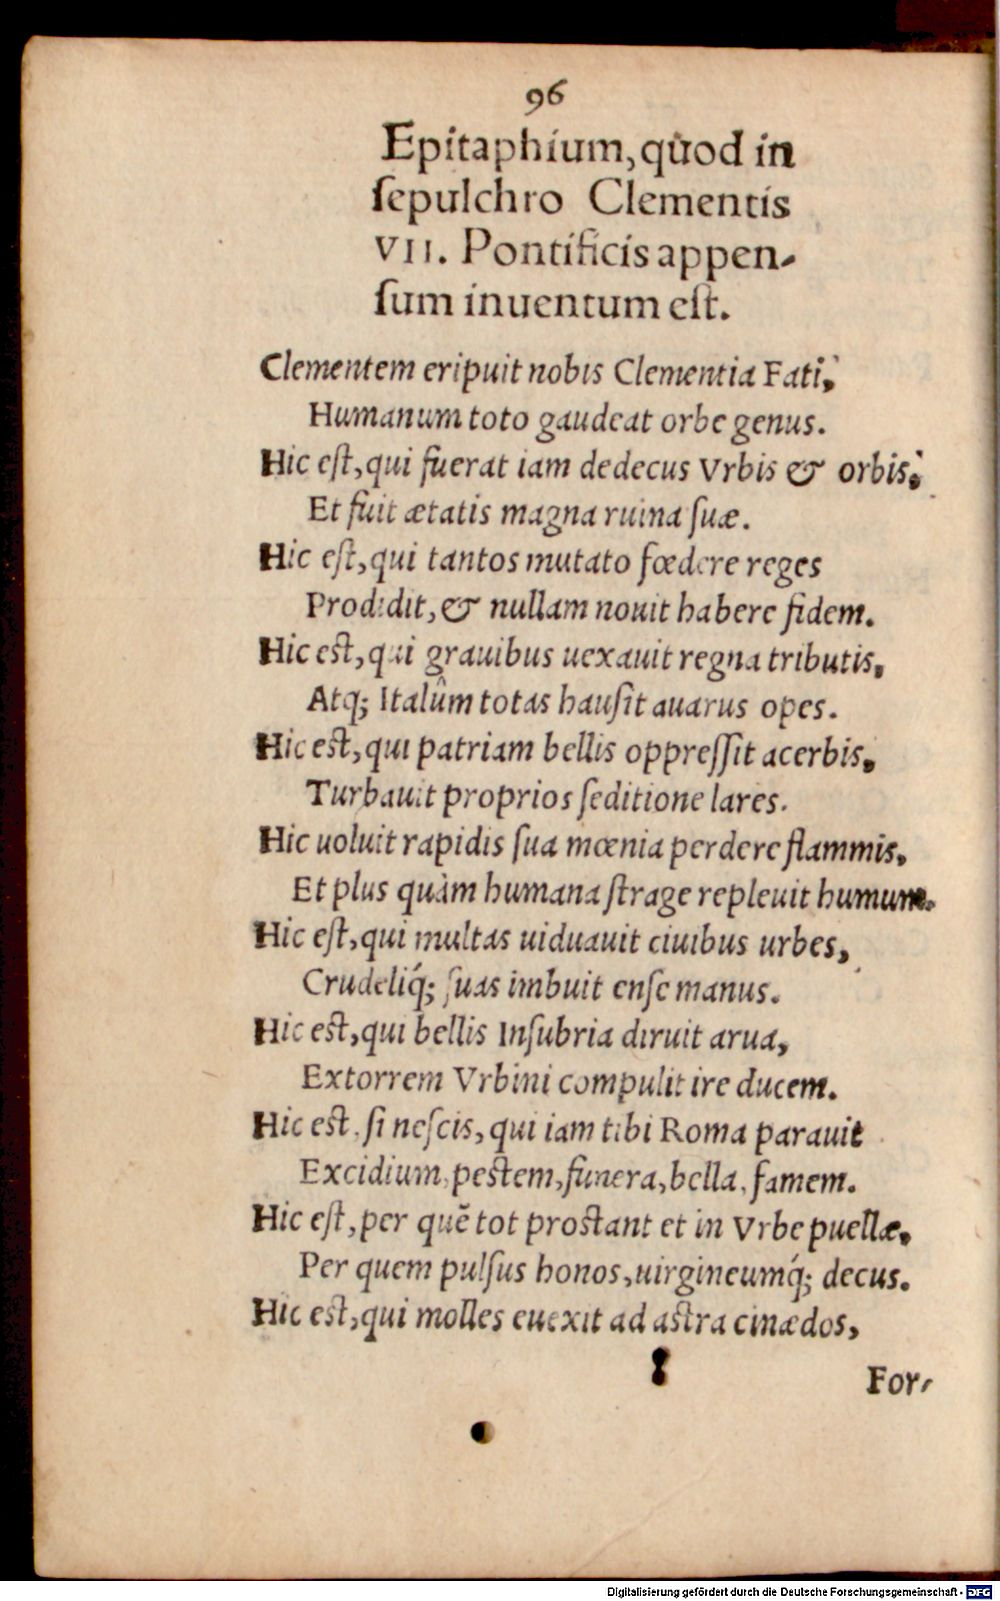 96
Epitaphium, quòd in
ſepulchro Clementis
VII. Pontificis appen-
ſum inuentum eſt.
Clementem eripuit nobis Clementia Fati,
Humanum toto gaudeat orbe genus.
Hic eſt, qui fuerat iam dedecus Vrbis & orbis,
Et fuit ætatis magna ruina ſuæ.
Hic eſt, qui tantos mutato fœdere reges
Prodidit, & nullam nouit habere fidem.
Hic eſt, qui grauibus uexauit regna tributis,
Atq; Italûm totas hauſit auarus opes.
Hic eſt, qui patriam bellis oppreſſit acerbis,
Turbauit proprios ſeditione lares.
Hic uoluit rapidis ſua mœnia perdere flammis,
Et plus quàm humana ſtrage repleuit humum.
Hic eſt, qui multas uiduauit ciuibus urbes,
Crudeliq́; ſuas imbuit enſe manus.
Hic eſt, qui bellis Inſubria diruit arua,
Extorrem Vrbini compulit ire ducem.
Hic eſt, ſi neſcis, qui iam tibi Roma parauit
Excidium, peſtem, funera, bella, famem.
Hic eſt, per quē tot proſtant et in Vrbe puellæ,
Per quem pulſus honos, uirgineumq́; decus.
Hic eſt, qui molles euexit ad aſtra cinædos,
For-
Digitalisierung gefördert durch die Deutsche Forschungsgemeinschaft - DFG